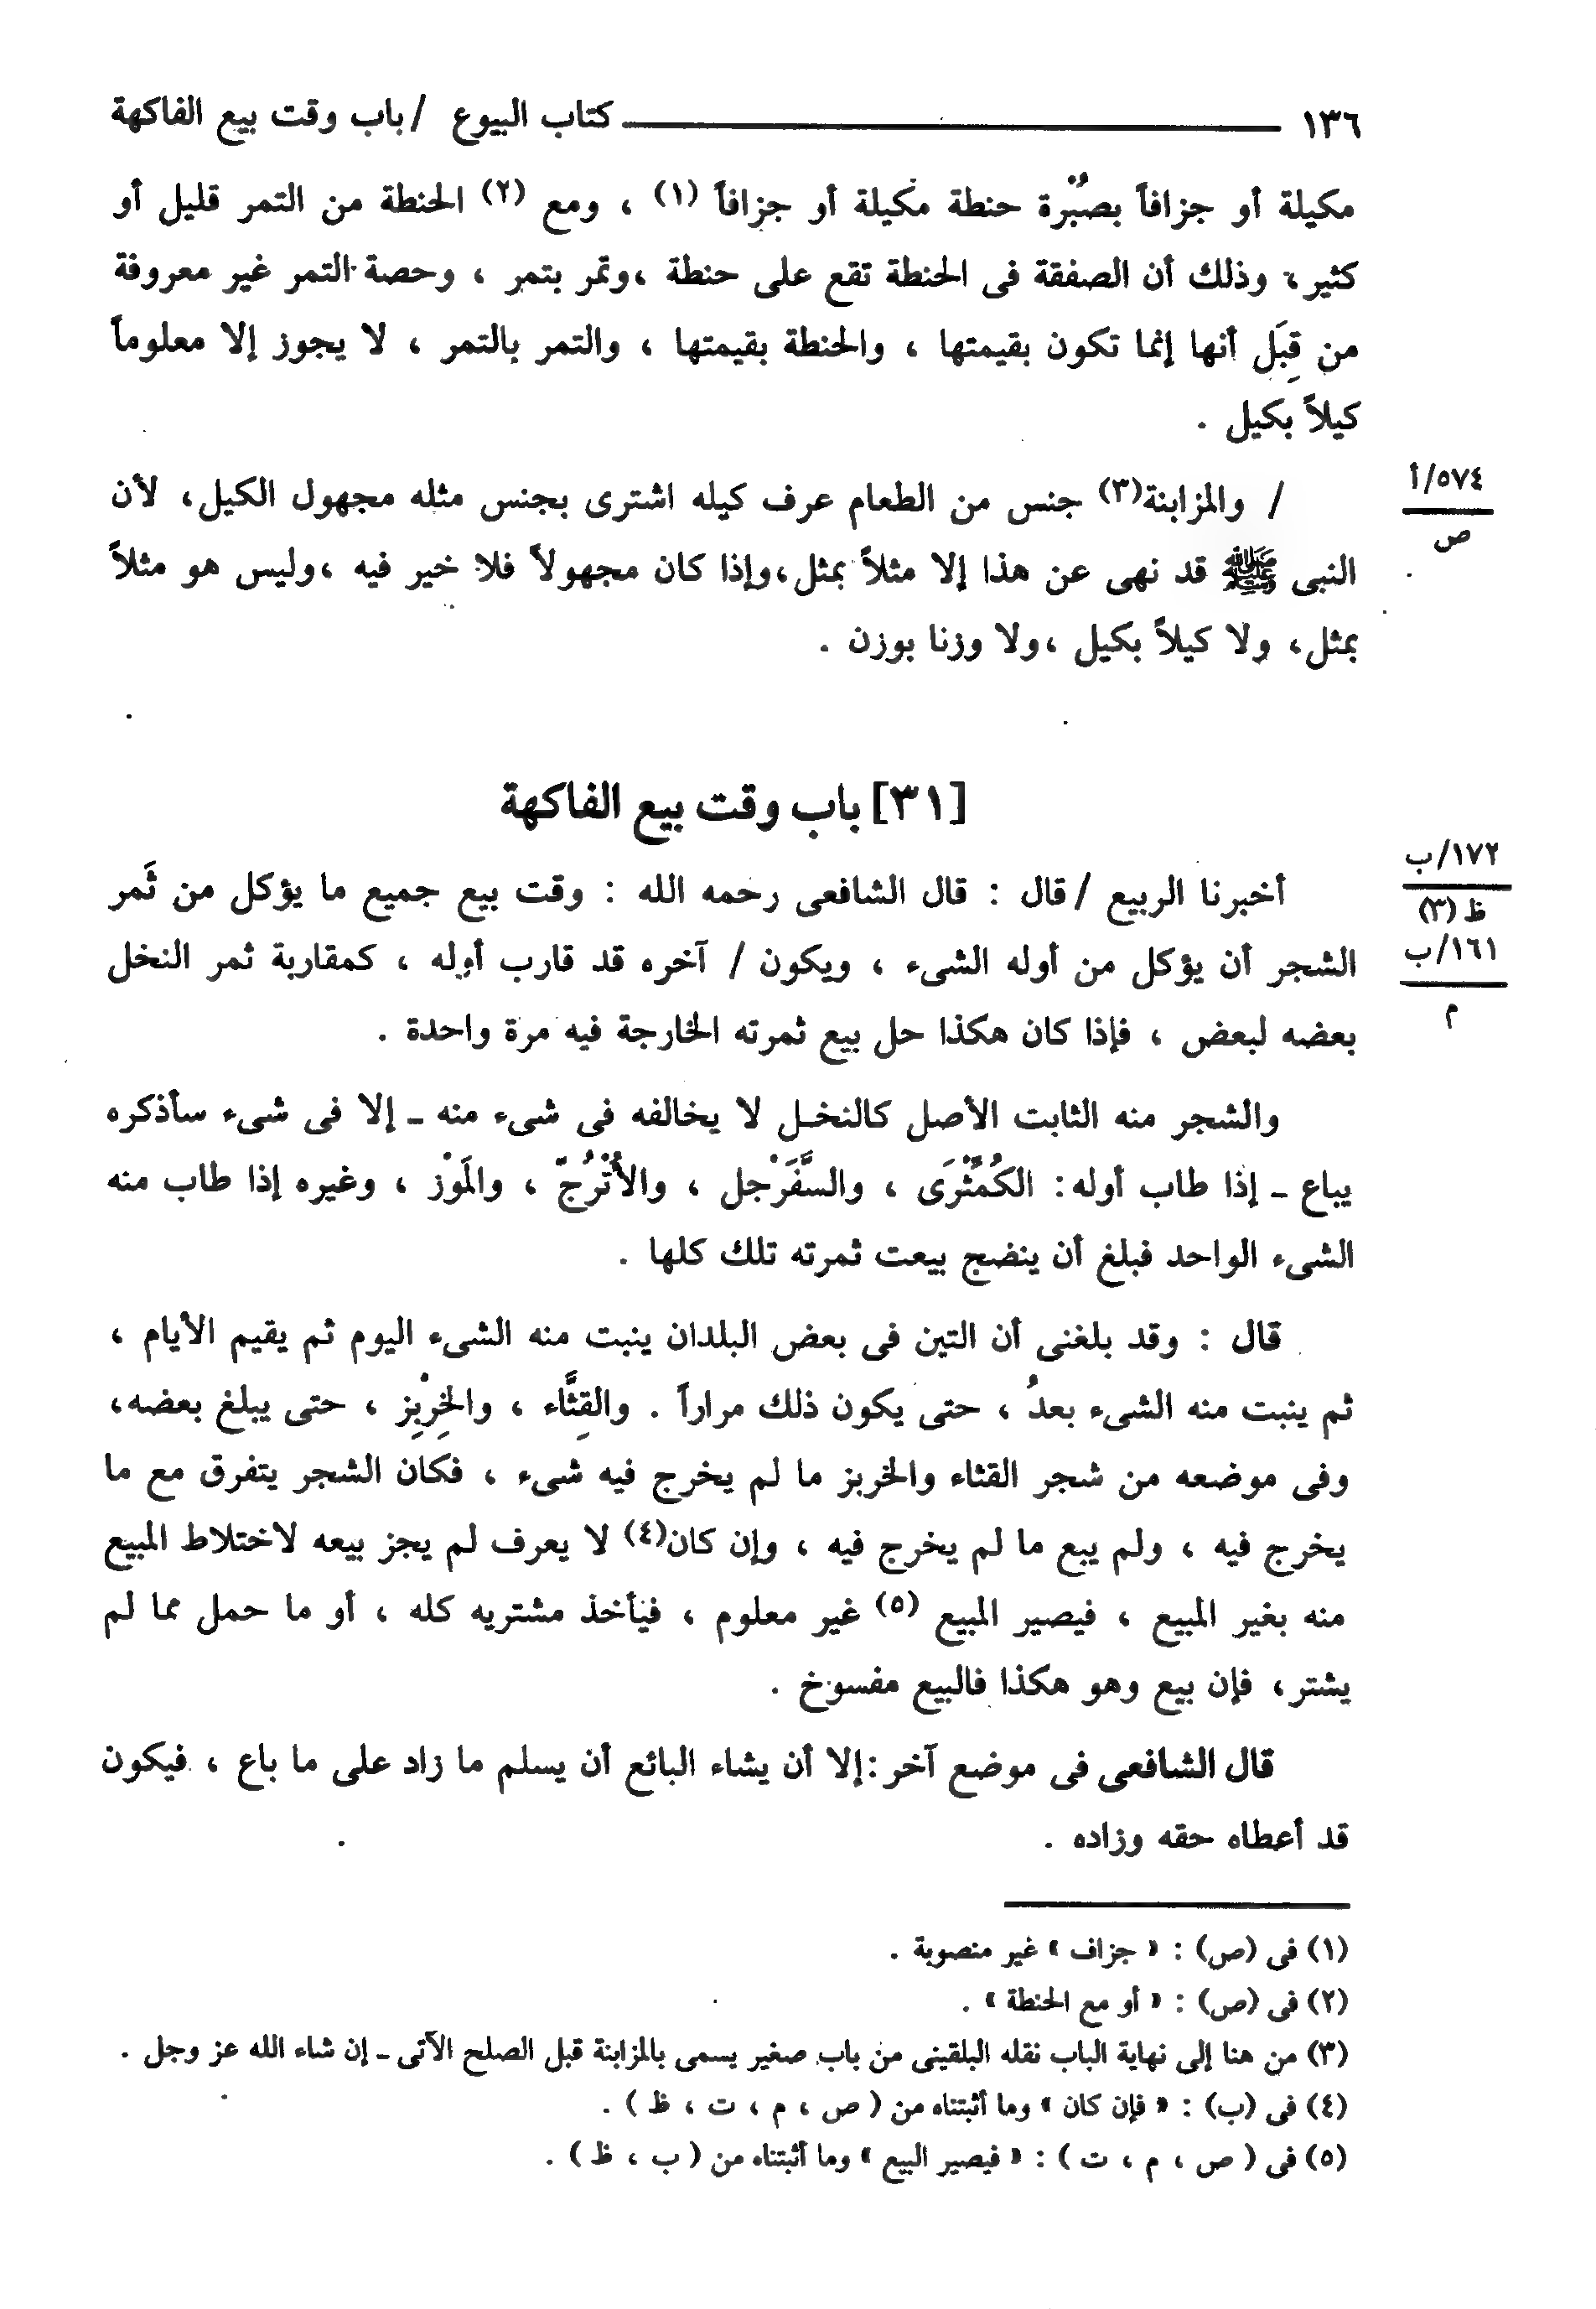 ١٣٦ كتاب البيوع / باب وقت بيع الفاكهة
مكيلة أو جزافاً بصُبْرة حنطة مكيلة أو جزافاً (١) ، ومع (٢) الحنطة من التمر قليل أو
كثير، وذلك أن الصفقة فى الحنطة تقع على حنطة ،وتمر بتمر ، وحصة التمر غير معروفة
من قِبَل أنها إنما تكون بقيمتها ، والحنطة بقيمتها ، والتمر بالتمر ، لا يجوز إلا معلوماً
كيلاً بكيل .
٥٧٤/أ
ص
/ والمزابنة(٣) جنس من الطعام عرف كيله اشترى بجنس مثله مجهول الكيل، لأن
النبى ﷺ قد نهى عن هذا إلا مثلاً بمثل،وإذا كان مجهولاً فلا خير فيه ،وليس هو مثلاً
بمثل، ولا كيلاً بكيل ،ولا وزنا بوزن .
[٣١] باب وقت بيع الفاكهة
١٧٢/ب
ظ (٣)
١٦١/ب
م
أخبرنا الربيع /قال : قال الشافعى رحمه الله : وقت بيع جميع ما يؤكل من ثَمر
الشجر أن يؤكل من أوله الشىء ، ويكون / آخره قد قارب أوله ، كمقاربة ثمر النخل
بعضه لبعض ، فإذا كان هكذا حل بيع ثمرته الخارجة فيه مرة واحدة .
والشجر منه الثابت الأصل كالنخـل لا يخالفه فى شىء منه ـ إلا فى شىء سأذكره
يباع ـ إذا طاب أوله: الكُمَّثْرَى ، والسَّفَرْجل ، والأُتْرُجّ ، والمَوْز ، وغيره إذا طاب منه
الشىء الواحد فبلغ أن ينضج بيعت ثمرته تلك كلها .
قال : وقد بلغنى أن التين فى بعض البلدان ينبت منه الشىء اليوم ثم يقيم الأيام ،
ثم ينبت منه الشىء بعدُ ، حتى يكون ذلك مراراً . والقِثَّاء ، والخِرْبِز ، حتى يبلغ بعضه،
وفى موضعه من شجر القثاء والخربز ما لم يخرج فيه شىء ، فكان الشجر يتفرق مع ما
يخرج فيه ، ولم يبع ما لم يخرج فيه ، وإن كان(٤) لا يعرف لم يجز بيعه لاختلاط المبيع
منه بغير المبيع ، فيصير المبيع (٥) غير معلوم ، فيأخذ مشتريه كله ، أو ما حمل مما لم
يشتر، فإن بيع وهو هكذا فالبيع مفسوخ .
قال الشافعى فى موضع آخر:إلا أن يشاء البائع أن يسلم ما زاد على ما باع ، فيكون
قد أعطاه حقه وزاده .
(١) فى (ص) : « جزاف » غير منصوبة .
(٢) فى (ص) : « أو مع الحنطة » .
(٣) من هنا إلى نهاية الباب نقله البلقينى من باب صغير يسمى بالمزابنة قبل الصلح الآتى ـ إن شاء الله عز وجل .
(٤) فى (ب) : « فإن كان » وما أثبتناه من ( ص ، م ، ت ، ظ ) .
(٥) فى ( ص ، م ، ت ) : « فيصير البيع » وما أثبتناه من ( ب ، ظ ) .